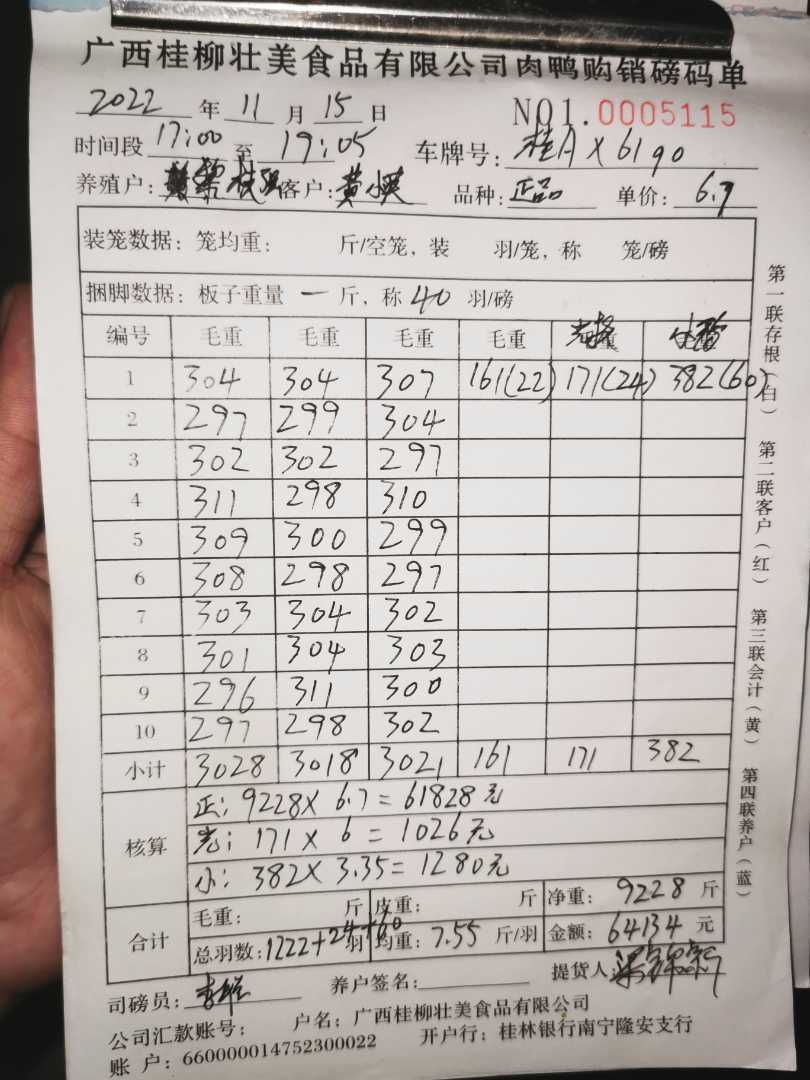 广西桂柳壮美食品有限公司肉鸭购销磅码单
2022 年 11 月 15 日 NO1.0005115
时间段 17:00 至 19:05 车牌号: 桂A X6190
养殖户: 客户: 黄小英 品种: 正品 单价: 6.7
装笼数据: 笼均重: 斤/空笼, 装 羽/笼, 称 笼/磅
捆脚数据: 板子重量 一 斤, 称 40 羽/磅
编号 毛重 毛重 毛重 毛重
1 304 304 307 161(22) 171(24) 382(60)
2 297 299 304
3 302 302 297
4 311 298 310
5 309 300 299
6 308 298 297
7 303 304 302
8 301 304 303
9 296 311 300
10 297 298 302
小计 3028 3018 3021 161 171 382
核算
正: 9228X 6.7=61828元
光: 171 X 6 = 1026元
小: 382X 3.35= 1280元
合计
毛重: 斤 皮重: 斤 净重: 9228 斤
总羽数: 1222+24+60 羽 均重: 7.55 斤/羽 金额: 64134 元
司磅员: 养户签名: 提货人:
公司汇款账号: 户名: 广西桂柳壮美食品有限公司
账 户: 660000014752300022 开户行: 桂林银行南宁隆安支行
第一联存根(白) 第二联客户(红) 第三联会计(黄) 第四联养户(蓝)